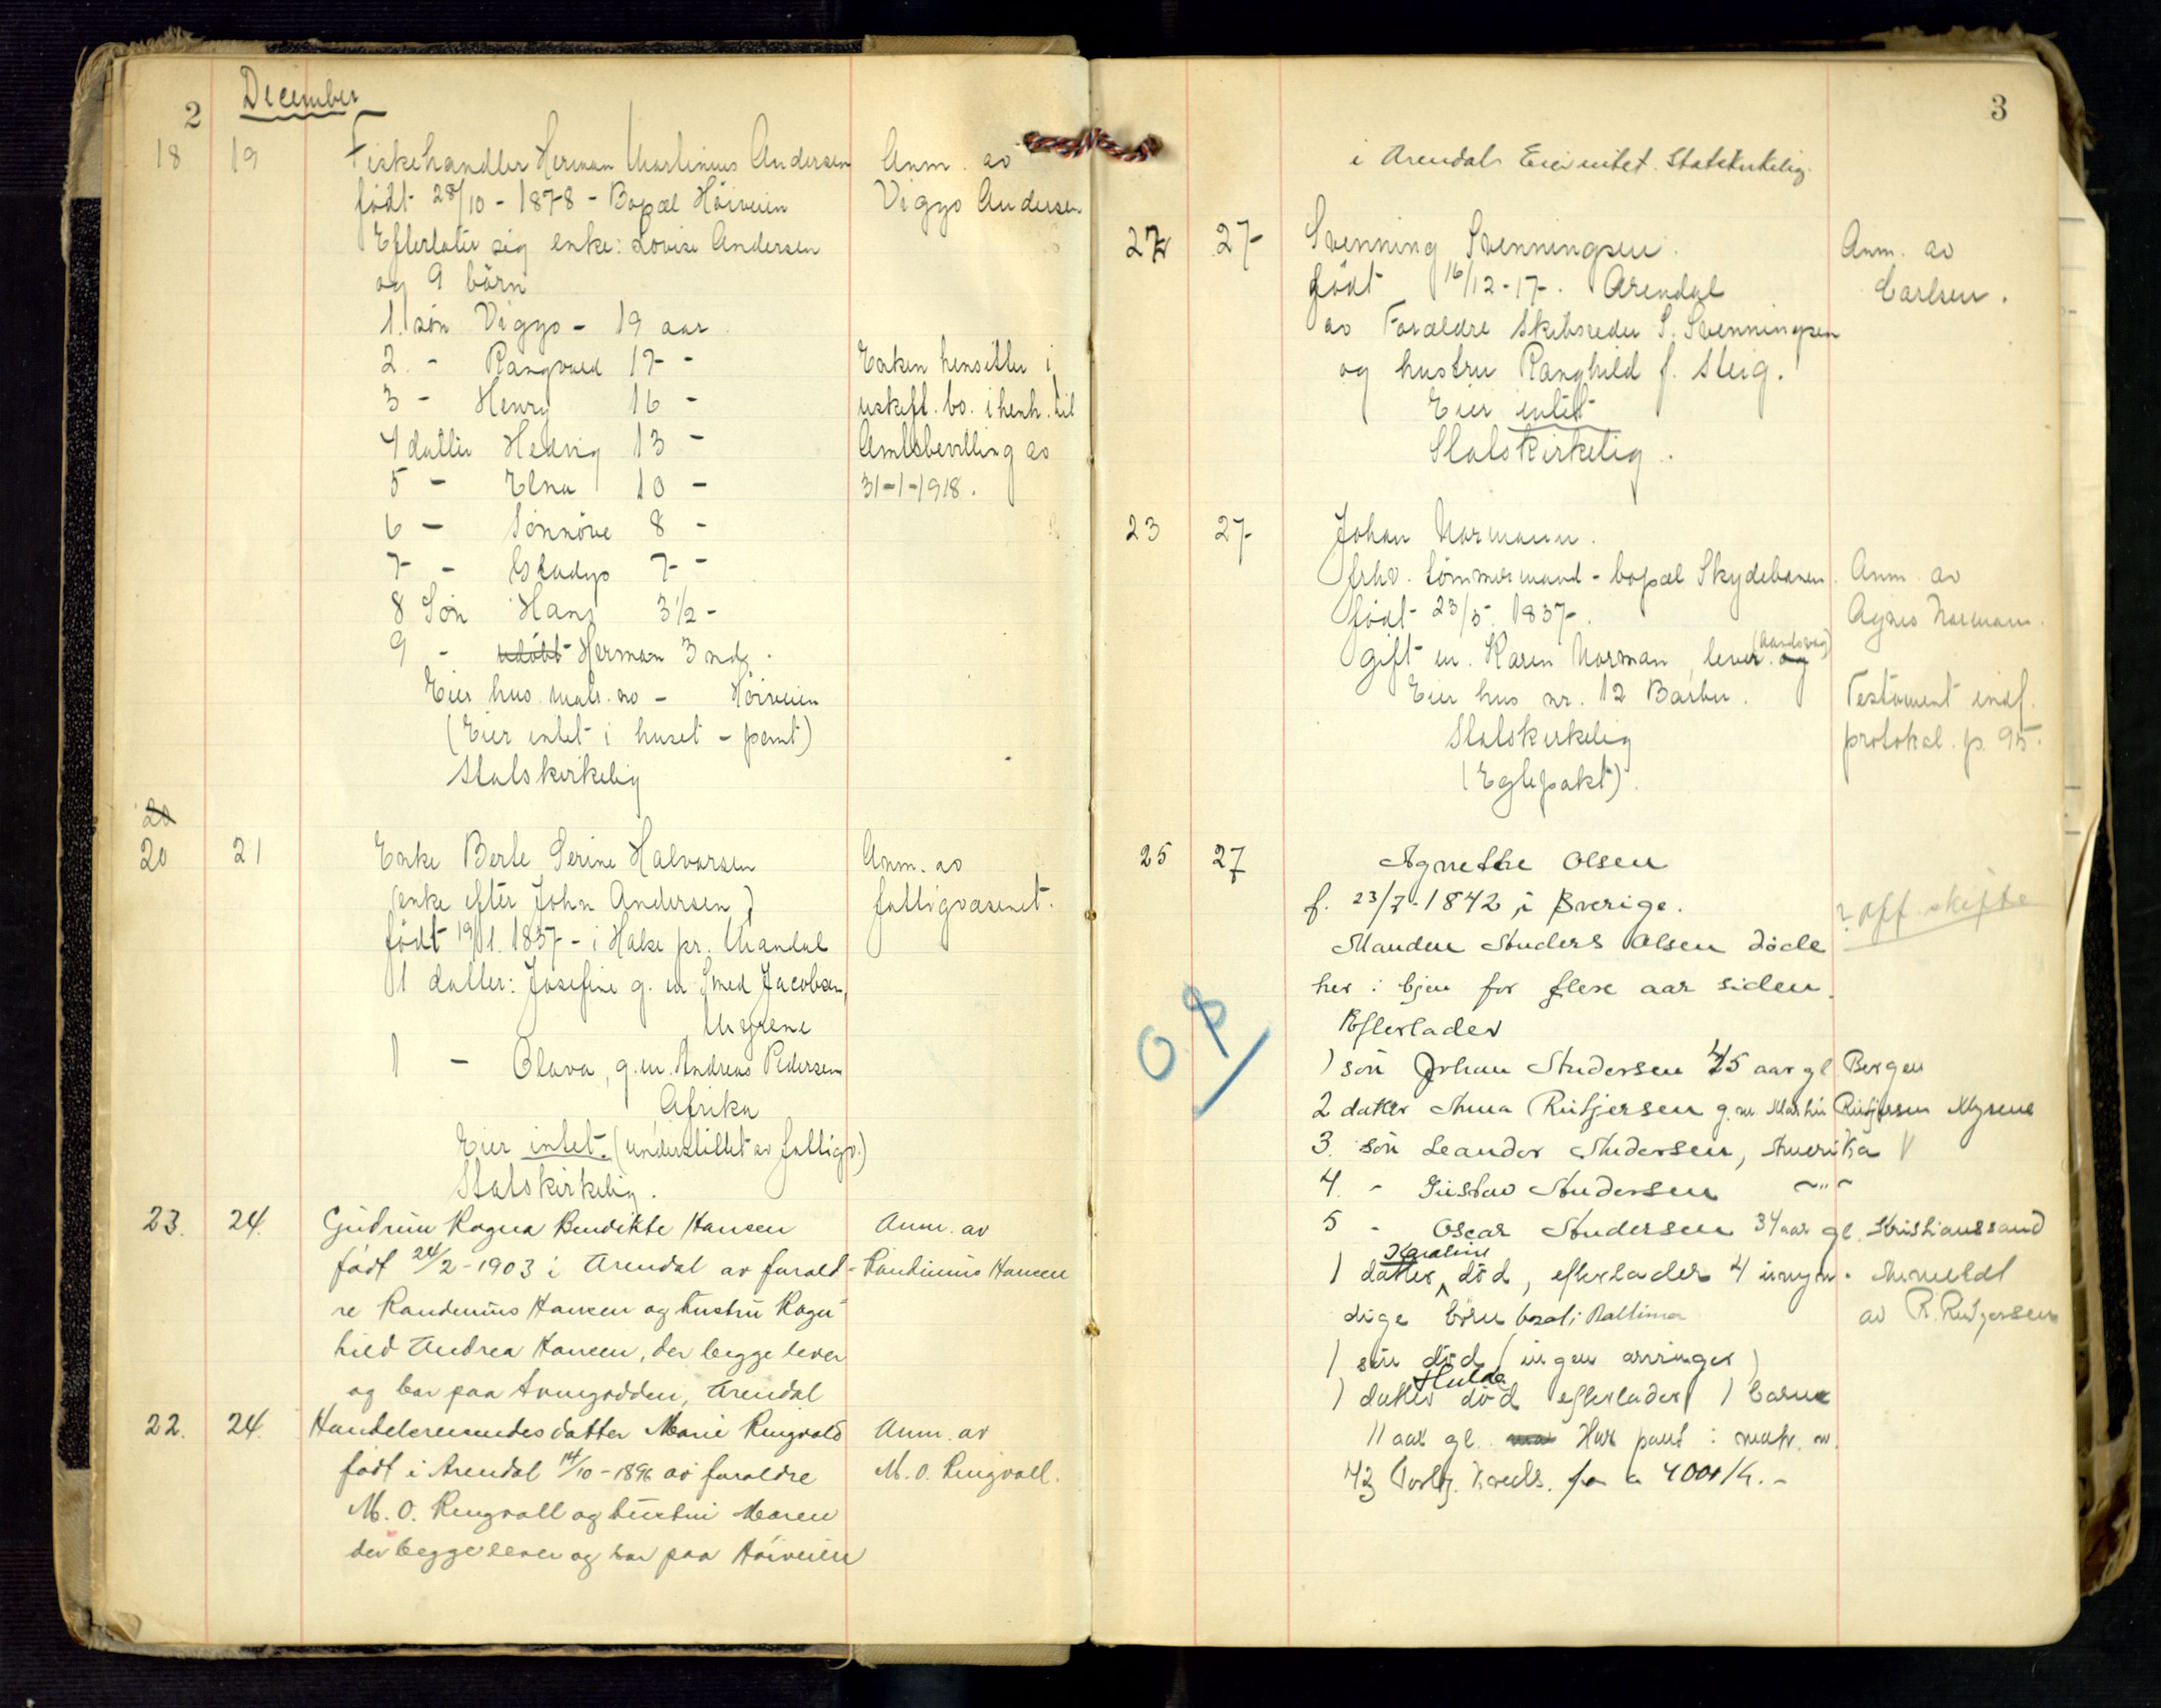 2 December
18 19 Fiskehandler Herman Martinius Andersen Anm. av
født 28/10 - 1878 - Bopæl Höiveien Viggo Andersen
Efterlater sig enke: Lovise Andersen
og 9 börn
1. sön Viggo - 19 aar.
2. - Rangvald 17 - Enken hensitter i
3 - Henry 16 - uskift. bo. i henh. til
4 datter Hedvig 13 - Amtsbevilling av
5 - Elna 10 - 31-1-1918.
6 - Sönnöve 8 -
7 - Gladys 7 -
8 Sön Hans 3½ -
9 - udöbt Herman 3 md.
Eier hus matr. no - Höiveien
(Eier intet i huset - pant)
Statskirkelig
20
20 21 Enke Berte Serine Halvorsen Anm. av
(enke efter John Andersen) fattigvæsenet.
født 19/1. 1837 - i Hake pr. Mandal
1 datter: Josefine g. m. Smed Jacobsen,
Myrene
1 - Olava, g. m. Andreas Pedersen
Afrika
Eier intet. (understöttet av fattigv.)
Statskirkelig.
23. 24. Gudrun Ragna Bendikte Hansen Anm. av
født 24/2 - 1903 i Arendal av foræld- Randinius Hansen
re Randinius Hansen og hustru Ragn-
hild Andrea Hansen, der begge lever
og bor paa Tangodden, Arendal
22. 24. Handelsreisendes datter Marie Ringvold Anm. av
født i Arendal 14/10 - 1896 av forældre M. O. Ringvoll.
M. O. Ringvoll og hustru Maren
der begge lever og bor paa Höiveien
3
i Arendal. Eier intet. Statskirkelig.
27 27 Svenning Svenningsen. Anm. av
født 16/12 - 17. Arendal Carlsen.
av Forældre Skibsreder S. Svenningsen
og hustru Ranghild f. Steig.
Eier intet
Statskirkelig.
23 27 Johan Normann.
frhv. tömmermand - bopæl Skydebanen. Anm. av
født 23/5. 1837. Agnes Normann.
gift m. Karen Norman, lever. og (aandssv)
Eier hus nr. 12 Barbu. Testament indf.
Statskirkelig protokol. p. 95.
(Egtepakt).
25 27 Agnethe Olsen
f. 23/7 - 1842 i Sverige. ? Off. skifte
Manden Anders Olsen döde
her i byen for flere aar siden.
Efterlader
1 sön Johan Andersen 45 aar gl Bergen
2 datter Anna Rutjersen g. m. Martin Rutjersen Myrene
3. sön Leander Andersen, Amerika
4. - Gustav Andersen -"-
5 - Oscar Andersen 34 aar gl. Kristianssand
O. P.
Karoline
1 datter død, efterlader 4 umyn- Anmeldt
dige börn bosat i Baltimor av R. Rutjersen
1 sön död (ingen arvinger)
Hulda
1 datter död efterlader 1 barn
11 aar gl. Har pant i matr. nr.
43 fra a 4000 Kr. -